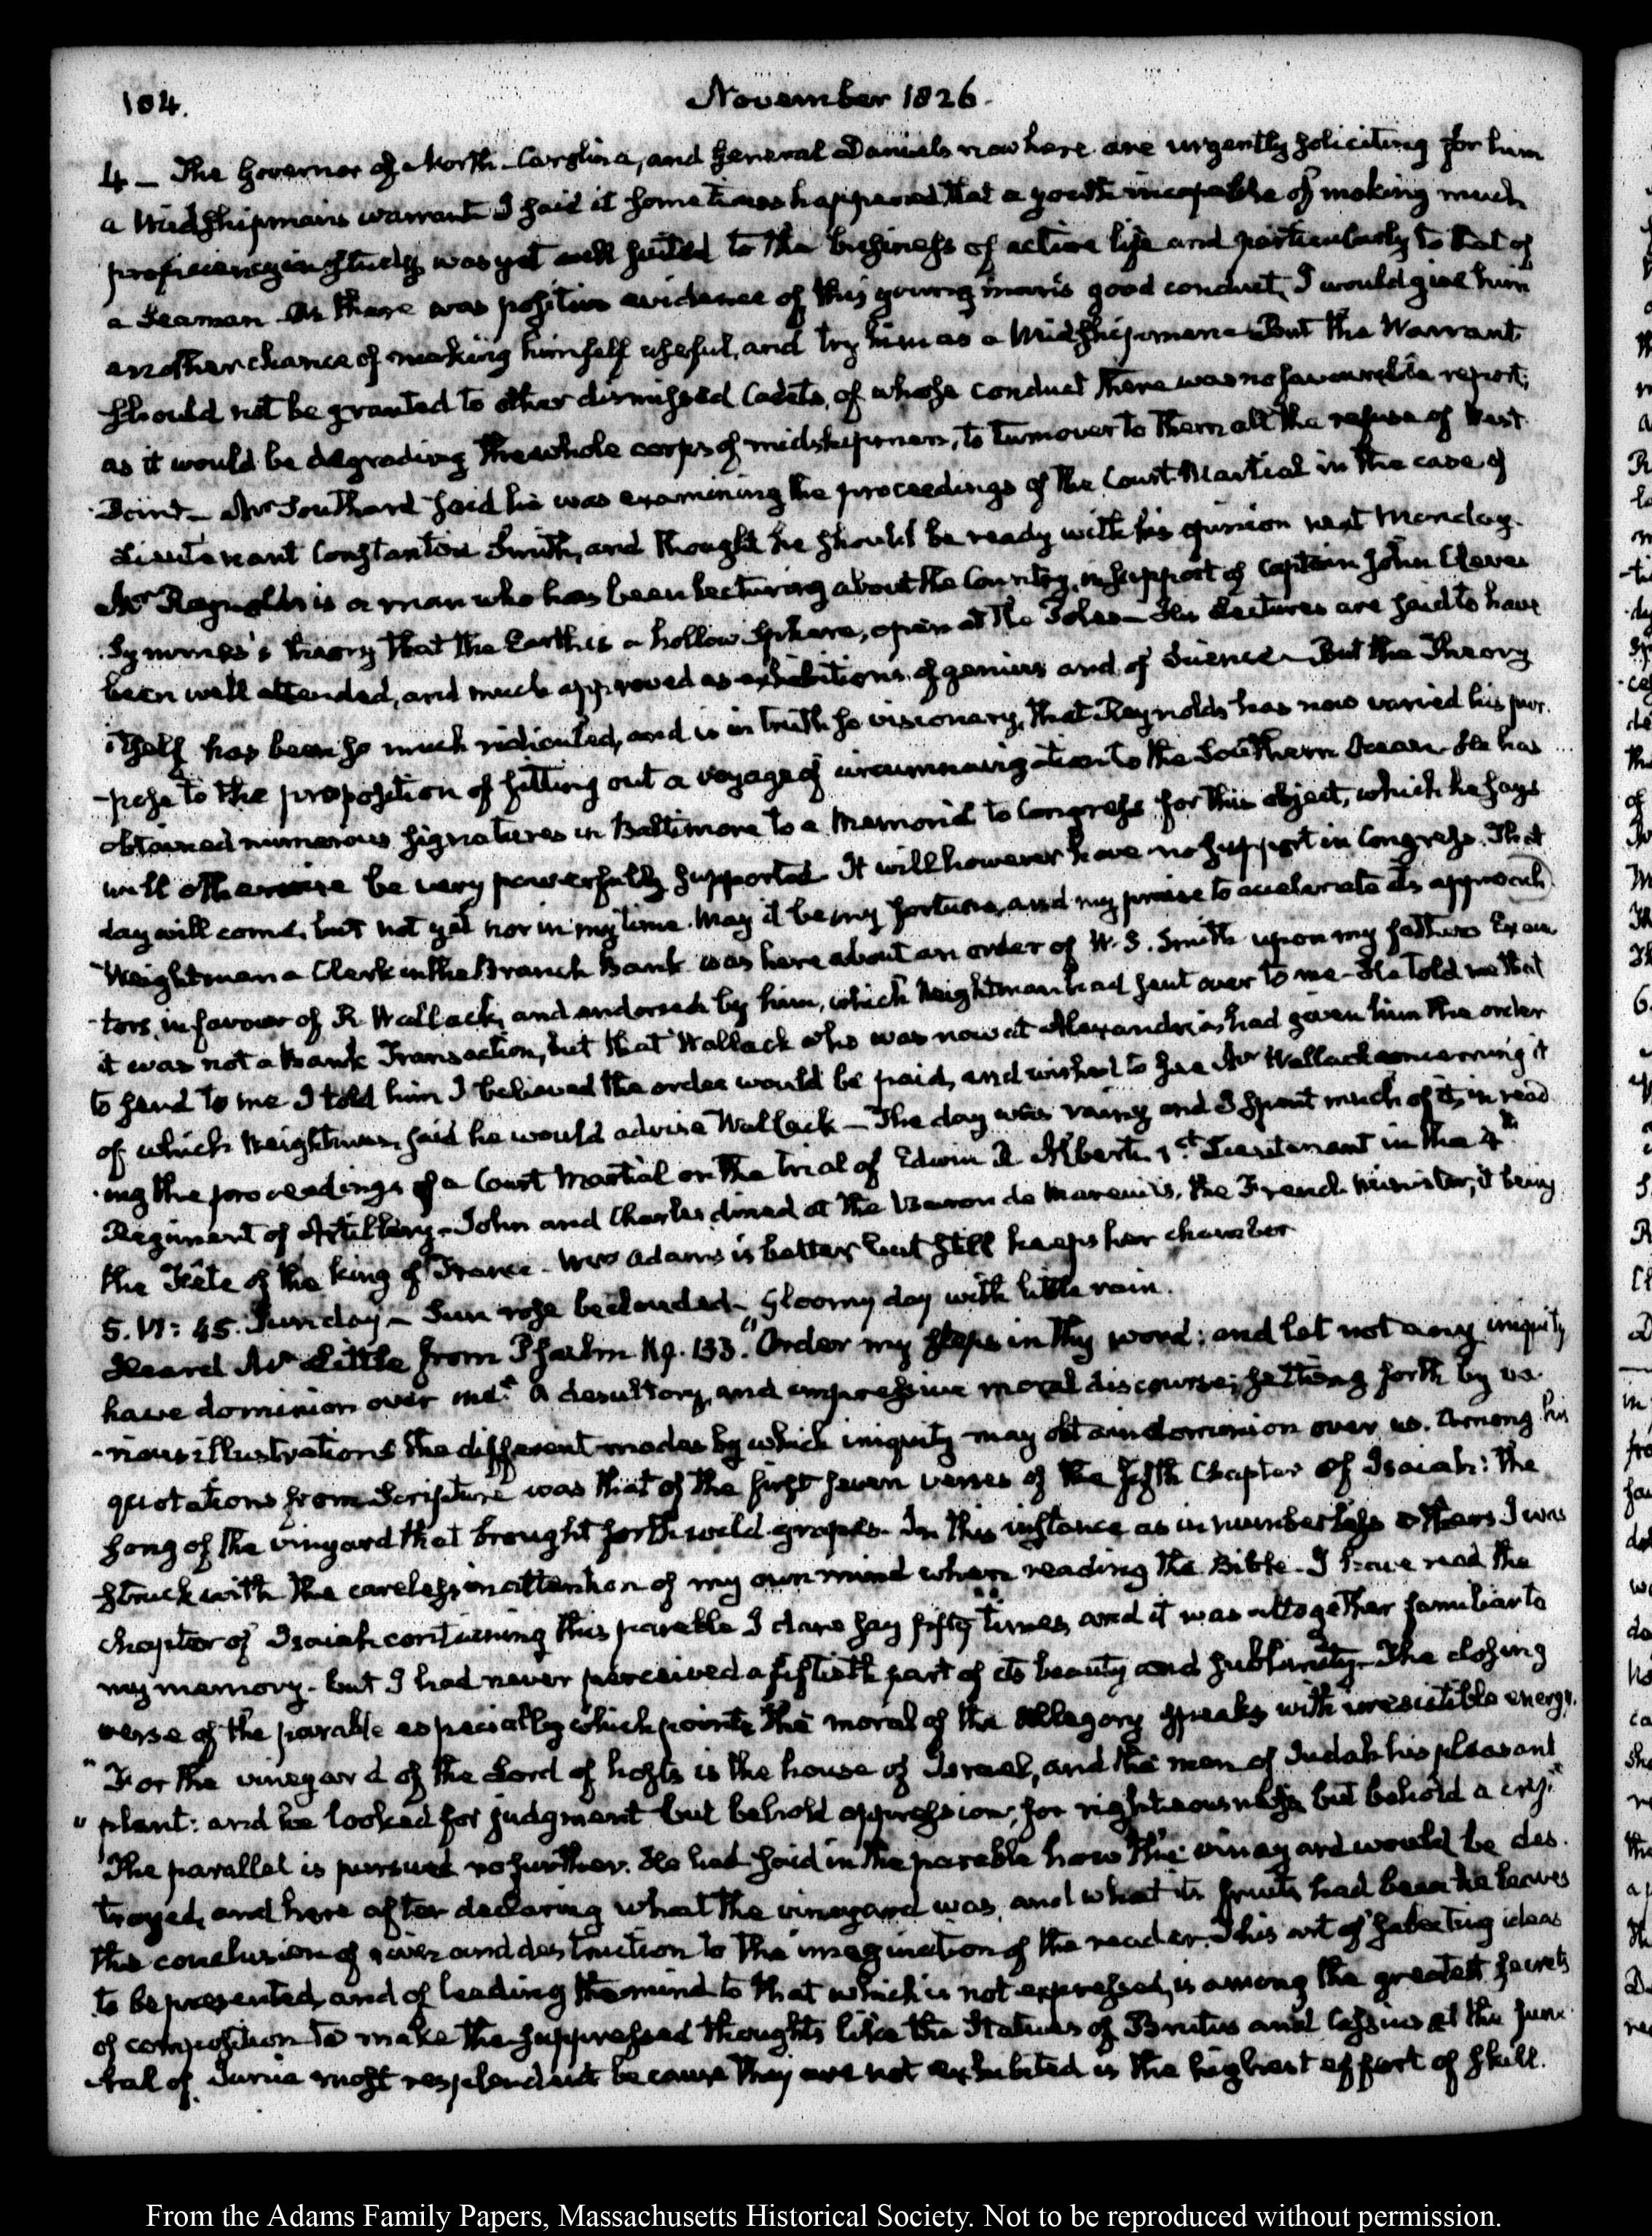 104.
November 1826.
4 — The Governor of North-Carolina, and General Daniels now here are urgently soliciting for him
a Midshipman's warrant I said it sometimes happened that a youth incapable of making much
proficiency in study was yet well suited to the business of active life and particularly to that of
a Seaman As there was positive evidence of this young man's good conduct, I would give him
another chance of making himself useful, and try him as a Midshipman—But the Warrant
should not be granted to other dismissed Cadets, of whose conduct there was no favourable report;
as it would be degrading the whole corps of midshipmen, to turn over to them all the refuse of West
Point— Mr Southard said he was examining the proceedings of the Court-Martial in the case of
Lieutenant Constantine Smith, and thought he should be ready with his opinion next Monday.
Mr Reynolds is a man who has been lecturing about the Country, in support of Captain John Cleves
Symmes's theory that the Earth is a hollow Sphere, open at the Poles— His Lectures are said to have
been well attended, and much approved as exhibitions of genius and of Science—But the Theory
itself has been so much ridiculed, and is in truth so visionary, that Reynolds has now varied his pur-
-pose to the proposition of fitting out a voyage of circumnavigation to the Southern Ocean—He has
obtained numerous signatures in Baltimore to a Memorial to Congress for this object, which he says
will otherwise be very powerfully supported. It will however have no support in Congress. That
day will come, but not yet nor in my time. May it be my fortune, and my praise to accelerate its approach
Weightman a Clerk in the Branch Bank was here about an order of W. S. Smith upon my father's Execu
-tors, in favour of R. Wallack, and endorsed by him, which Weightman had sent over to me—He told me that
it was not a Bank Transaction, but that Wallack who was now at Alexandria had given him the order
to send to me I told him I believed the order would be paid, and wished to see Mr Wallack concerning it
of which Weightman said he would advise Wallack— The day was rainy and I spent much of it, in read
-ing the proceedings of a Court Martial on the trial of Edwin R. Alberti 1st Lieutenant in the 4th
Regiment of Artillery—John and Charles dined at the Baron de Mareuil's, the French Minister, it being
the Fête of the King of France. Mrs Adams is better but still keeps her chamber
5. VI: 45. Sunday— Sun rose beclouded— Gloomy day with little rain.
Heard Mr Little from Psalm 119. 133. "Order my steps in thy word: and let not any iniquity
have dominion over me." A desultory, and impressive moral discourse; setting forth by va-
-rious illustrations the different modes by which iniquity may obtain dominion over us. Among his
quotations from Scripture was that of the first seven verses of the fifth Chapter of Isaiah: the
song of the vinyard that brought forth wild grapes. In this instance as in numberless others I was
struck with the careless inattention of my own mind when reading the Bible. I have read the
Chapter of Isaiah containing this parable I dare say fifty times, and it was altogether familiar to
my memory. but I had never perceived a fiftieth part of its beauty and sublimity—The closing
verse of the parable especially which points the moral of the allegory speaks with irresistible energy.
"For the vineyard of the Lord of hosts is the house of Israel, and the men of Judah his pleasant
"plant: and he looked for judgment but behold oppression; for righteousness, but behold a cry."
The parallel is pursued no further. He had said in the parable how the vinayard would be des-
troyed, and here after declaring what the vineyard was, and what its fruits had been he leaves
the conclusion of and destruction to the imagination of the reader. This art of selecting ideas
to be presented, and of leading the mind to that which is not expressed, is among the greatest secrets
of composition To make the suppressed thoughts like the Statues of Brutus and Cassius at the fune
-ral of Junia most resplendent because they are not exhibited is the highest effort of skill.
From the Adams Family Papers, Massachusetts Historical Society. Not to be reproduced without permission.